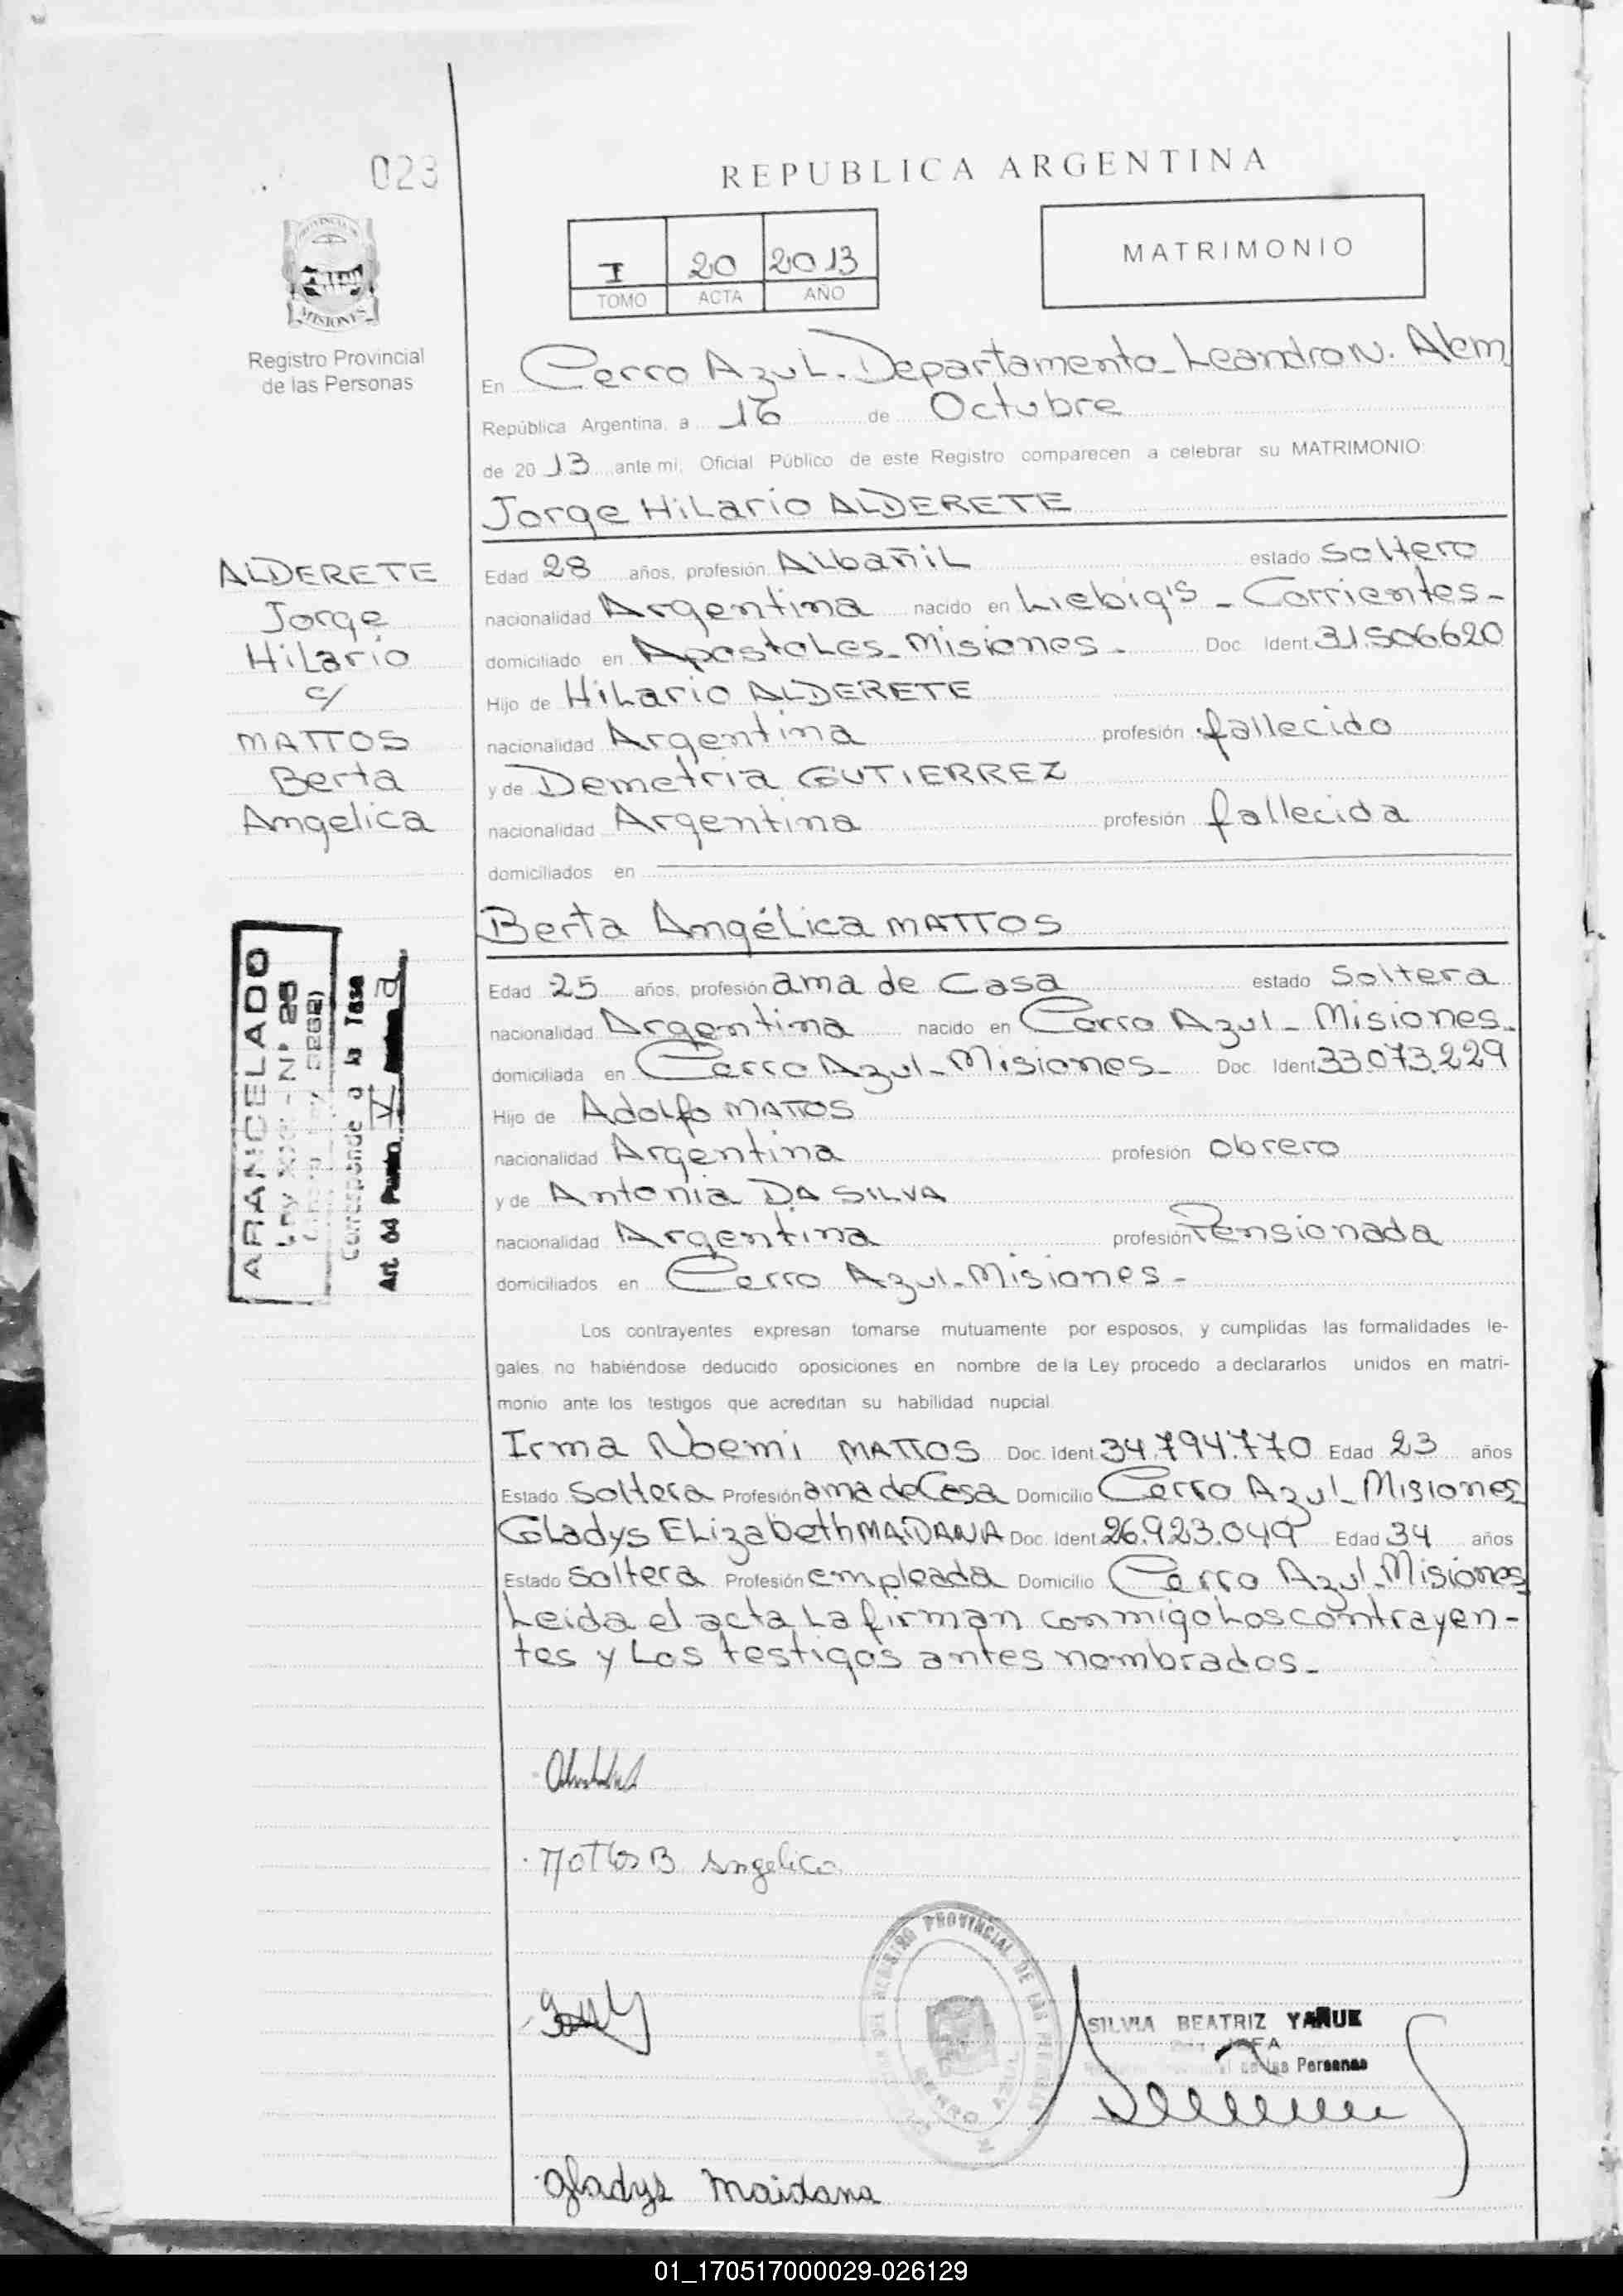 023
REPUBLICA ARGENTINA
I 20 2013
TOMO ACTA AÑO
MATRIMONIO
MISIONES
Registro Provincial
de las Personas
En Cerro Azul. Departamento_ Leandro N. Alem
República Argentina, a 16 de Octubre
de 20 13 ante mi, Oficial Público de este Registro comparecen a celebrar su MATRIMONIO:
Jorge Hilario ALDERETE
ALDERETE
Jorge
Hilario
c/
MATTOS
Berta
Angelica
Edad 28 años, profesión Albañil estado Soltero
nacionalidad Argentina nacido en Liebig's - Corrientes-
domiciliado en Apostoles_Misiones- Doc. Ident. 31.506.620
Hijo de Hilario ALDERETE
nacionalidad Argentina profesión fallecido
y de Demetria GUTIERREZ
nacionalidad Argentina profesión fallecida
domiciliados en
Berta Angélica MATTOS
Edad 25 años, profesión ama de Casa estado Soltera
nacionalidad Argentina nacido en Cerro Azul_ Misiones.
domiciliada en Cerro Azul_Misiones_ Doc. Ident. 33.073.229
Hijo de Adolfo MATTOS
nacionalidad Argentina profesión Obrero
y de Antonia DA SILVA
nacionalidad Argentina profesión Pensionada
domiciliados en Cerro Azul_Misiones-
ARANCELADO
Corresponde a la Tasa
Art. 64 Punto V a
Los contrayentes expresan tomarse mutuamente por esposos, y cumplidas las formalidades le-
gales, no habiéndose deducido oposiciones en nombre de la Ley procedo a declararlos unidos en matri-
monio ante los testigos que acreditan su habilidad nupcial.
Irma Noemi MATTOS Doc. Ident. 34.794.770 Edad 23 años
Estado Soltera Profesión ama de Casa Domicilio Cerro Azul_ Misiones
Gladys Elizabeth MAIDANA Doc. Ident. 26.923.049 Edad 34 años
Estado Soltera Profesión empleada Domicilio Cerro Azul_Misiones
Leida el acta La firman conmigo Los contrayen-
tes y Los testigos antes nombrados_
Mattos B Angelica
REGISTRO PROVINCIAL DE LAS PERSONAS
CERRO AZUL
SILVIA BEATRIZ YARUK
JEFA
de las Personas
Gladys Maidana
01_170517000029-026129